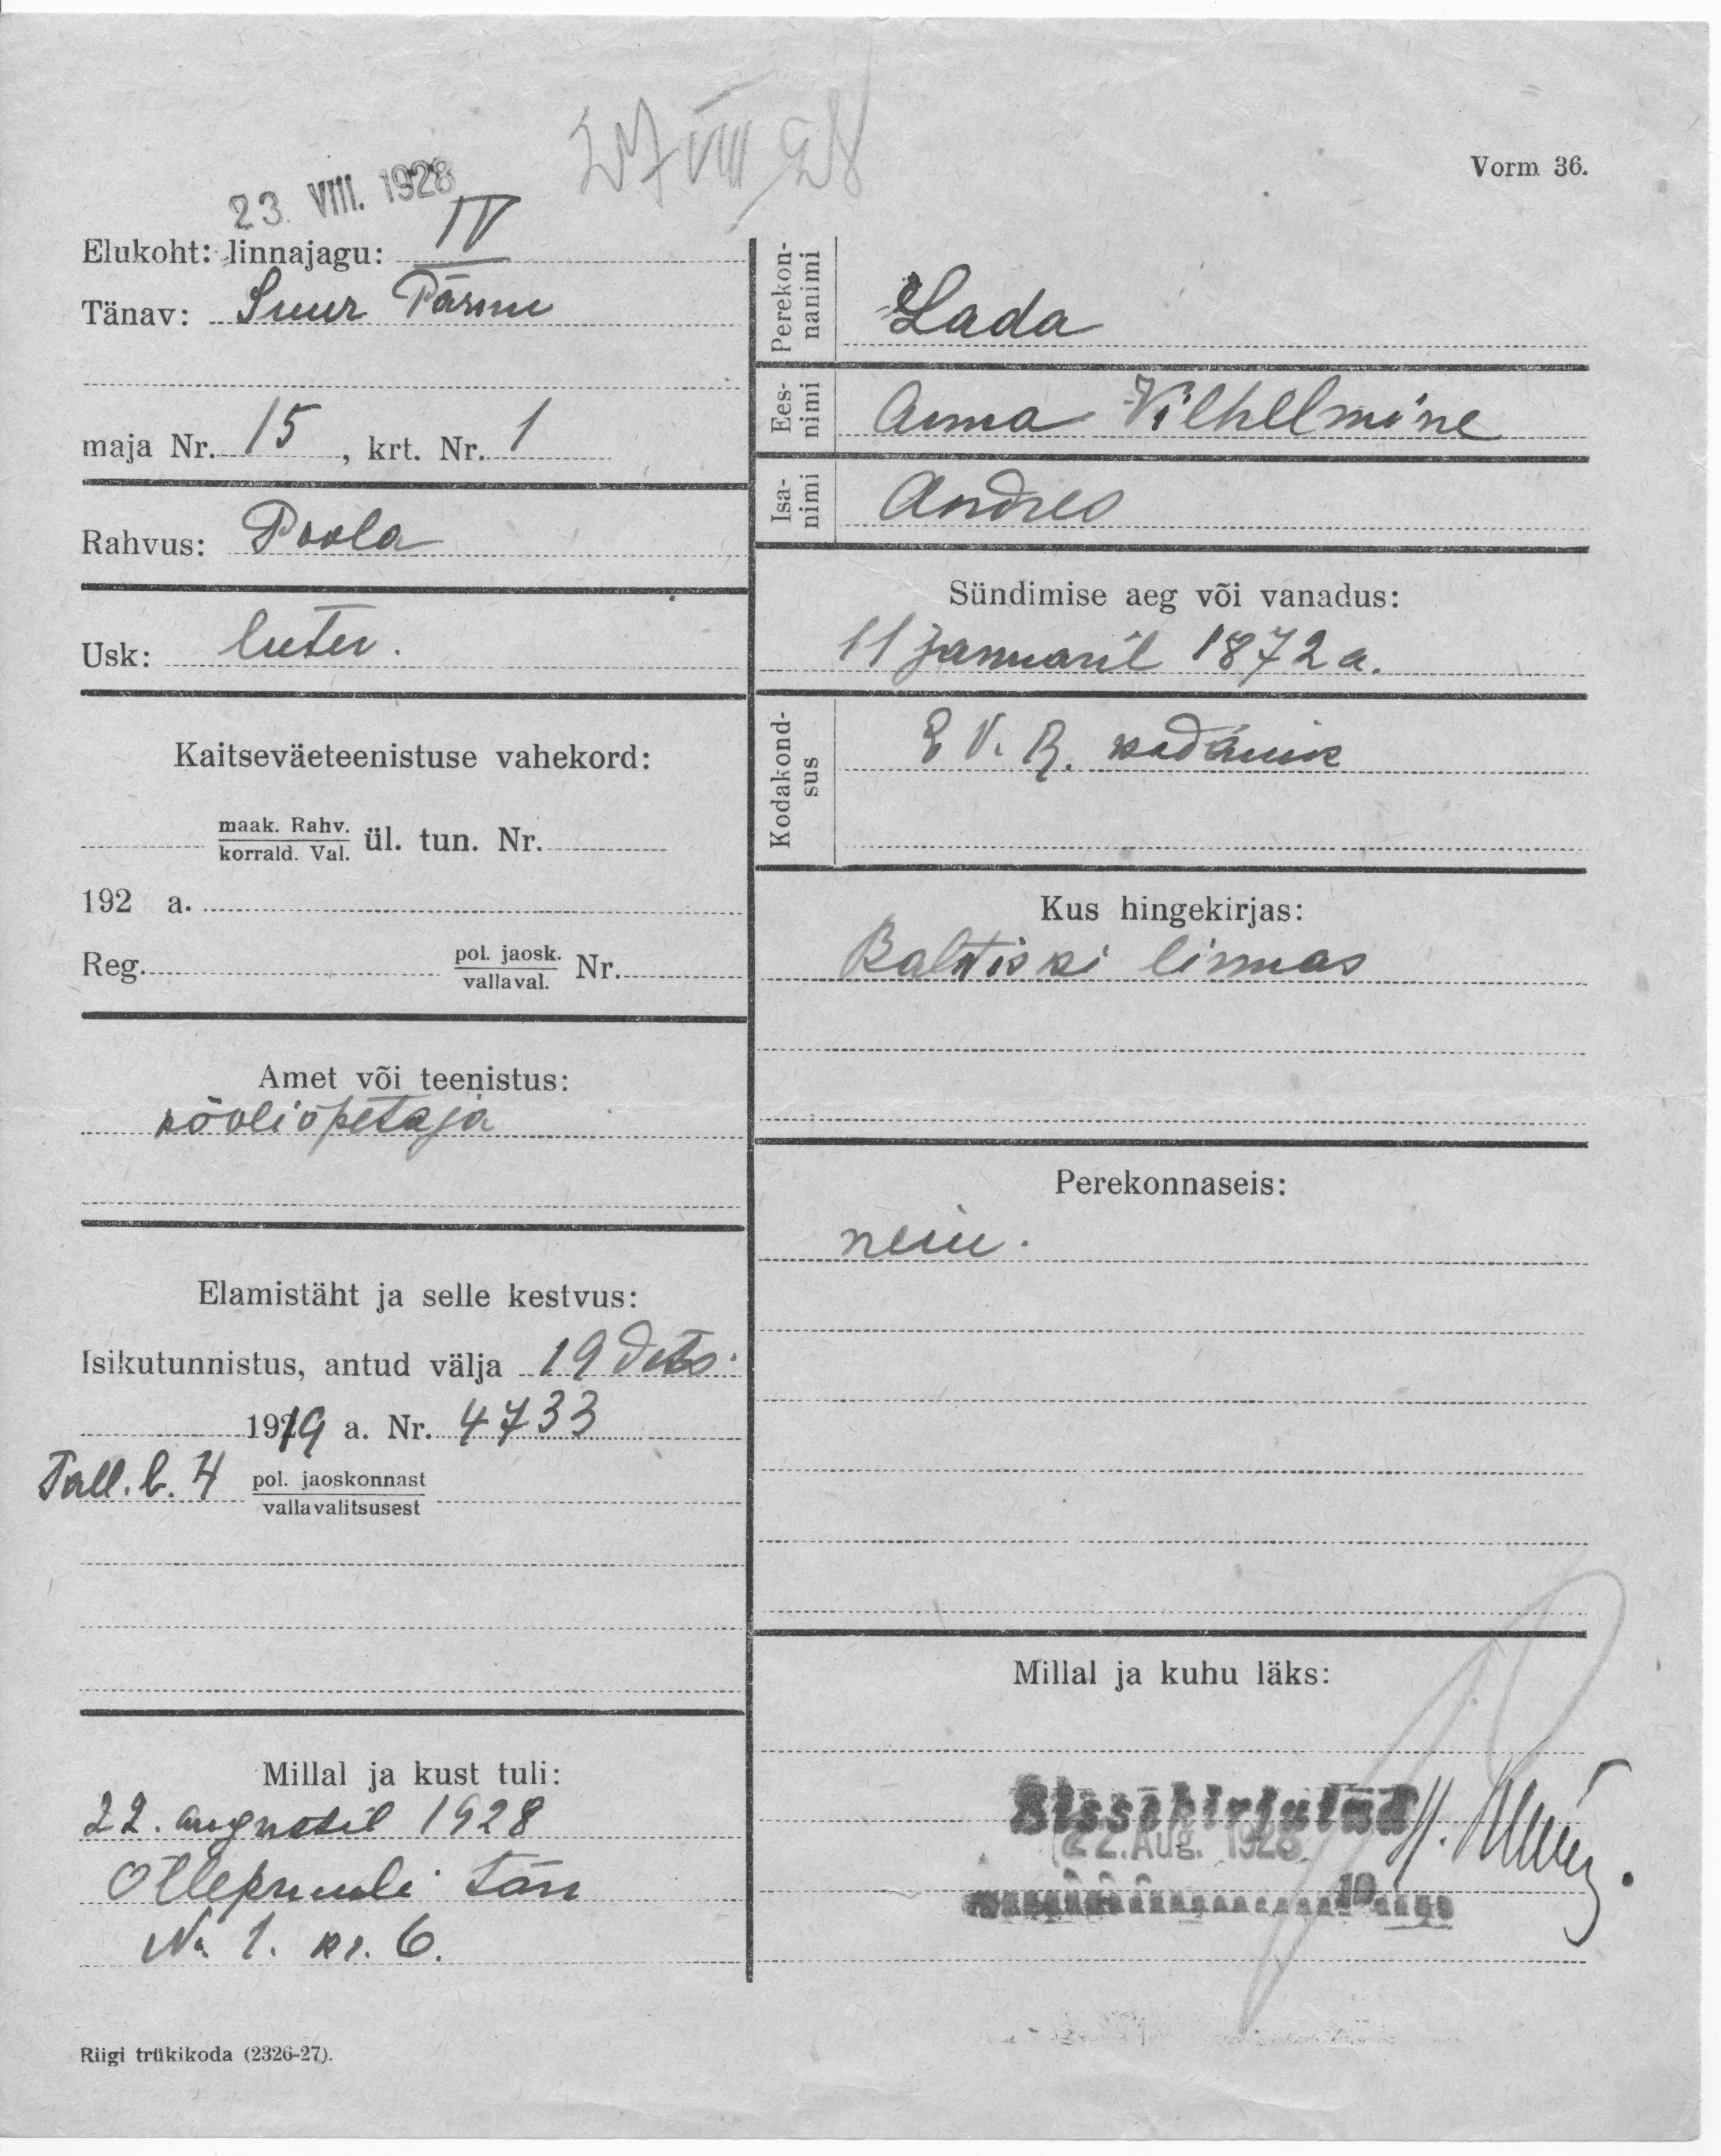 27 VIII 28
Vorm 36.
23. VIII. 1928
Elukoht: linnajagu: IV
Tänav: Suur Pärnu
maja Nr. 15, krt. Nr. 1
Rahvus: Poola
Usk: luter.
Kaitseväeteenistuse vahekord:
maak. Rahv.
korrald. Val. ül. tun. Nr.
192 a.
Reg. pol. jaosk.
vallaval. Nr.
Amet või teenistus:
kooliõpetaja
Elamistäht ja selle kestvus:
Isikutunnistus, antud välja 19 dets.
1919 a. Nr. 4733
Tall. l. 4 pol. jaoskonnast
vallavalitsusest
Millal ja kust tuli:
22. augustil 1928
Õllepruuli tän
No 1. kr. 6.
Riigi trükikoda (2326-27).
Perekonnanimi
Lada
Eesnimi
Anna Vilhelmine
Isanimi
Andres
Sündimise aeg või vanadus:
11 Januaril 1872 a.
Kodakondsus
E V. R. kodanik
Kus hingekirjas:
Baltiski linnas
Perekonnaseis:
neiu.
Millal ja kuhu läks:
Sissekirjutud
22. Aug. 1928